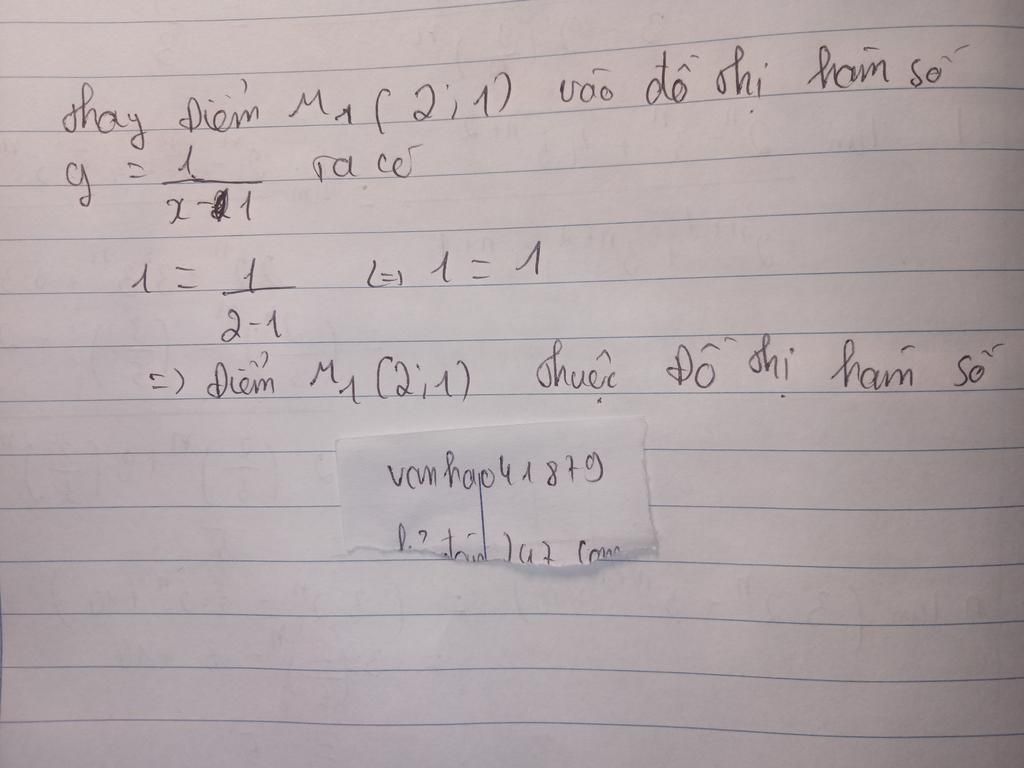 thay điểm M1 ( 2 ; 1 ) vào đồ thị hàm số
y = 1/(x - 1) ta có
1 = 1/(2-1) <=> 1 = 1
=> Điểm M1 (2;1) thuộc Đồ thị hàm số
vanhap41879